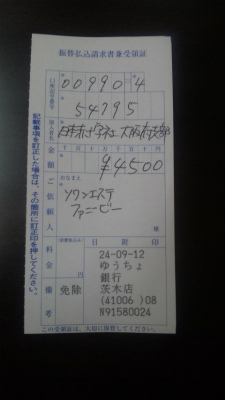 振替払込請求書兼受領証
口座記号番号
00990 4
54795
加入者名
日本赤十字社 大阪府支部
金額
千 百 十 万 千 百 十 円
¥4500
ご依頼人
おなまえ
ソワンエステ
ファニービー
様
料金
(消費税込み)
円
備考
免除
日附印
24-09-12
ゆうちょ
銀行
茨木店
(41006 )08
N91580024
記載事項を訂正した場合は、その箇所に訂正印を押してください。
この受領証は、大切に保管してください。